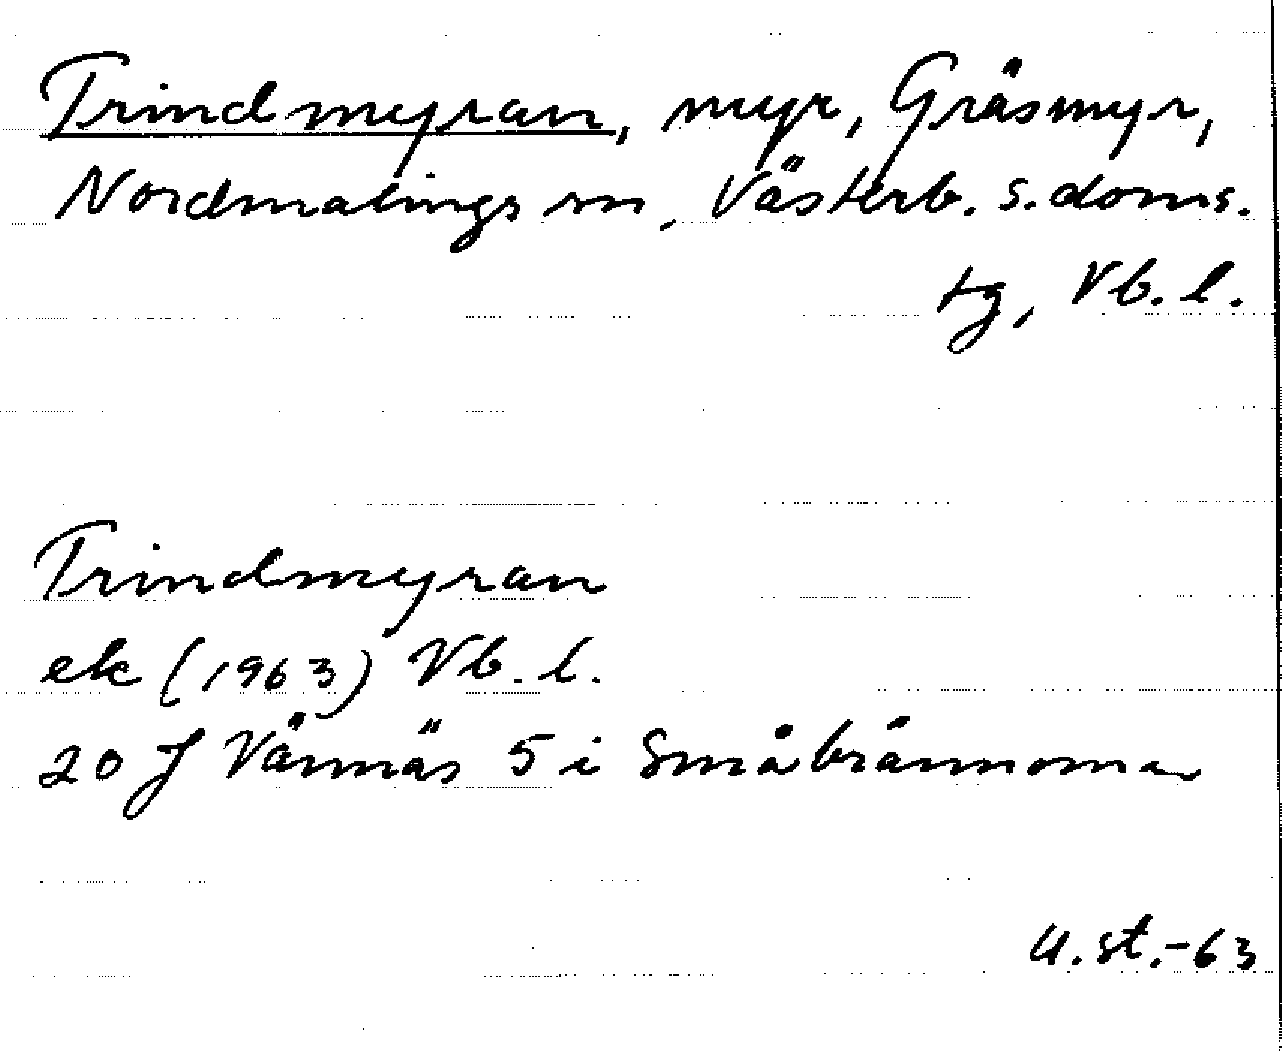 Trindmyran, myr, Gräsmyr,
Nordmalings sn, Västerb. s. doms.
tg, Vb. l.
Trindmyran
ek (1963) Vb. l.
20 J Vännäs 5 i Småbrännorna
U. st. -63